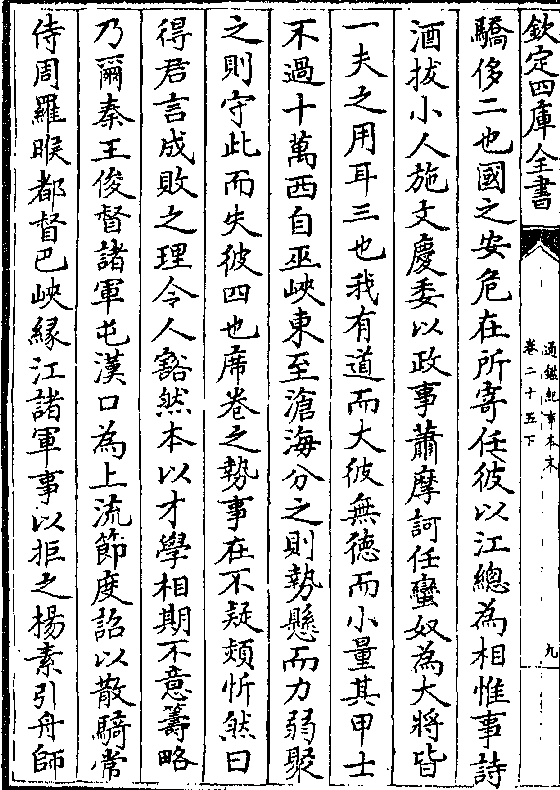 欽定四庫全書
通鑑紀事本末
卷二十五下
九
驕侈二也國之安危在所寄任彼以江總為相惟事詩
酒拔小人施文慶委以政事蕭摩訶任蠻奴為大將皆
一夫之用耳三也我有道而大彼無徳而小量其甲士
不過十萬西自巫峽東至滄海分之則勢懸而力弱聚
之則守此而失彼四也席卷之勢事在不疑熲忻然曰
得君言成敗之理令人豁然本以才學相期不意籌略
乃爾秦王俊督諸軍屯漢口為上流節度詔以散騎常
侍周羅㬋都督巴峽緣江諸軍事以拒之楊素引舟師